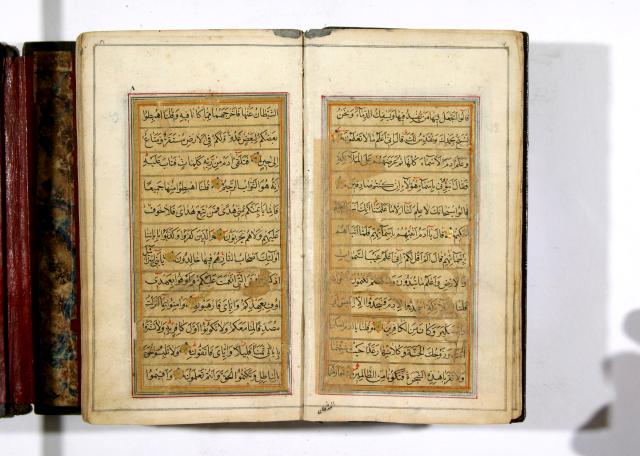 قالوا اتجعل فيها من يفسد فيها ويسفك الدماء ونحن
نسبح بحمدك ونقدس لك قال اني اعلم ما لا تعلمون
وعلم ادم الاسماء كلها ثم عرضهم على الملائكة
فقال انبئوني باسماء هؤلاء ان كنتم صادقين
قالوا سبحانك لا علم لنا الا ما علمتنا انك انت
الحكيم قال يا ادم انبئهم باسمائهم فلما انباهم
باسمائهم قال الم اقل لكم اني اعلم غيب السموات
والارض واعلم ما تبدون وما كنتم
اسجدوا لادم فسجدوا الا
واستكبر وكان من الكافرين وقلنا يا ادم
وزوجك الجنة وكلا منها رغدا حيث شئتما
ولا تقربا هذه الشجرة فتكونا من الظالمين فازلهما
الشيطان عنها فاخرجهما مما كانا فيه وقلنا اهبطوا
بعضكم لبعض عدو ولكم في الارض مستقر ومتاع
الى حين فتلقى ادم من ربه كلمات فتاب عليه
انه هو التواب الرحيم قلنا اهبطوا منها جميعا
فاما ياتينكم مني هدى فمن تبع هداي فلا خوف
عليهم ولا هم يحزنون والذين كفروا وكذبوا باياتنا
اولئك اصحاب النار هم فيها خالدون يا بني اسرائيل
اذكروا نعمتي التي انعمت عليكم واوفوا بعهدي
اوف بعهدكم واياي فارهبون وامنوا بما انزلت
مصدقا لما معكم ولا تكونوا اول كافر به ولا تشتروا
باياتي ثمنا قليلا واياي فاتقون ولا تلبسوا الحق
بالباطل وتكتموا الحق وانتم تعلمون واقيموا